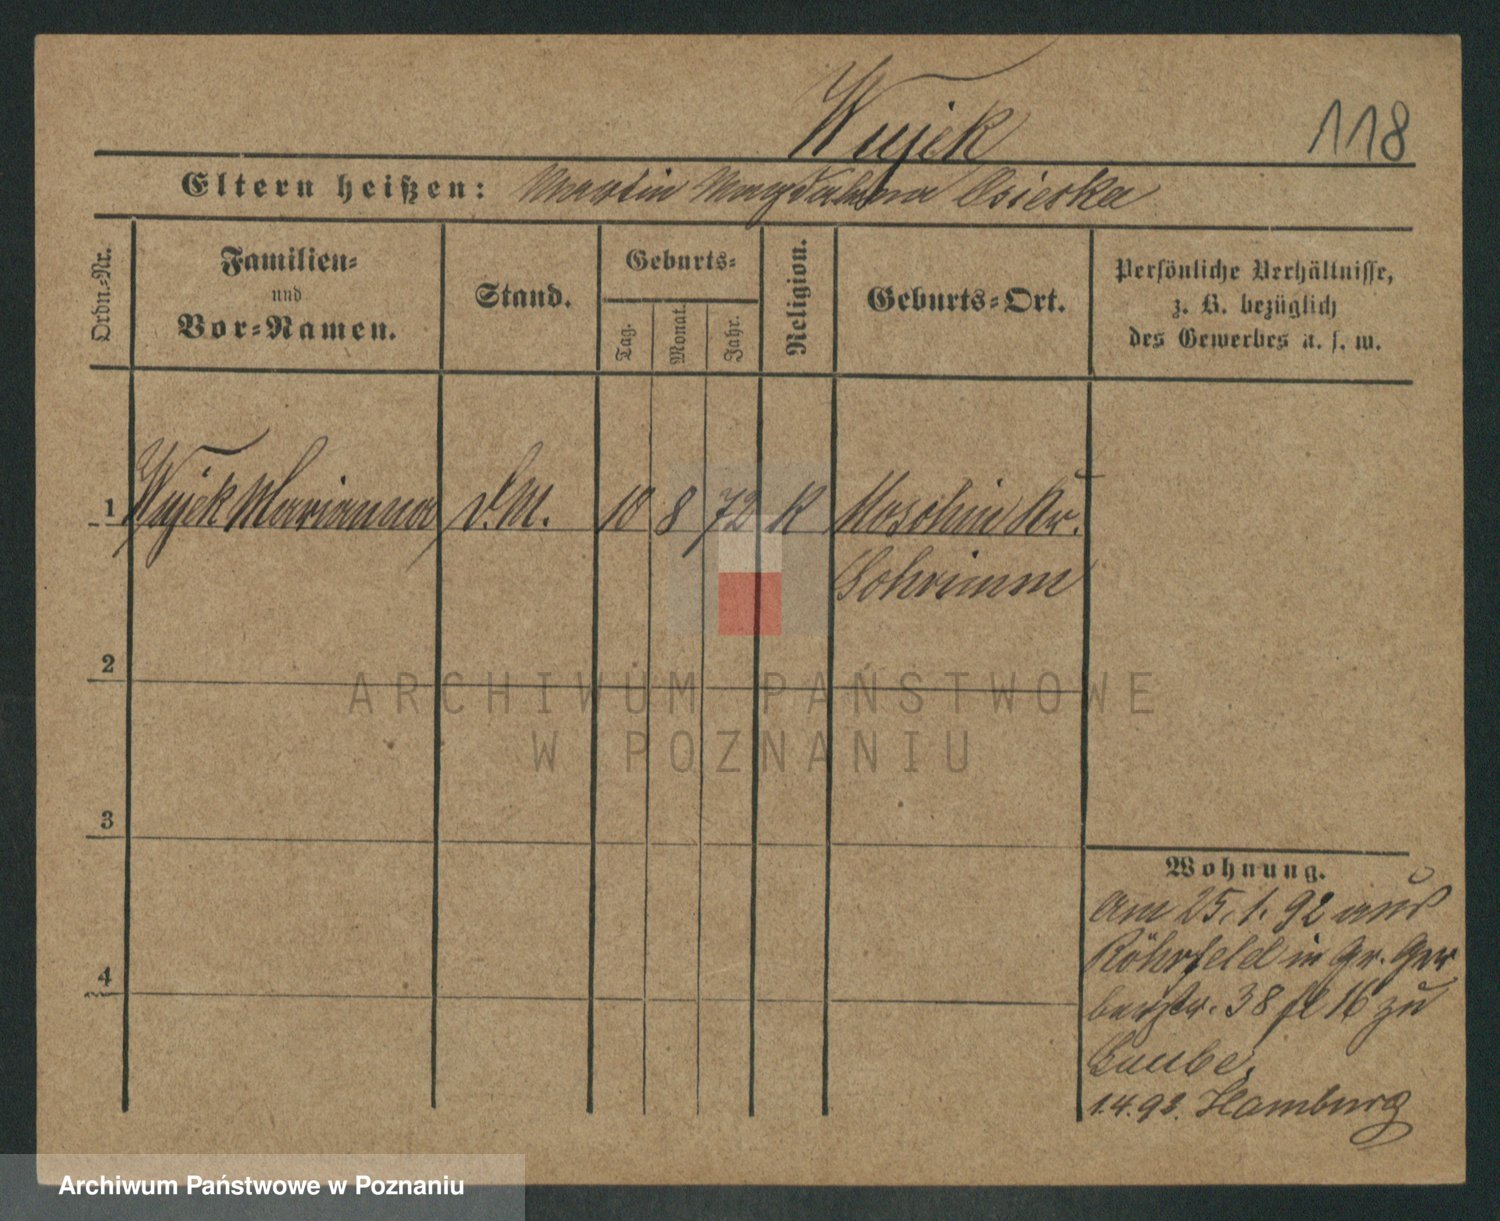 Wujek
118
Eltern heißen: Martin Magdalena Osieska
Ordn.-Nr.
Familien-
und
Vor-Namen.
Stand.
Geburts-
Tag.
Monat.
Jahr.
Religion.
Geburts-Ort.
Persönliche Verhältnisse,
z. B. bezüglich
des Gewerbes u. s. w.
1 Wujek Marianna d. M. 10 8 72 K Moschin Kr.
Schrimm
2
ARCHIWUM PAŃSTWOWE
W POZNANIU
3
Wohnung.
am 25.1.92 aus
Röhrfeld in Gr. Ger
berstr. 38 16 zu
Laube.
4
1.4.93. Hamburg
Archiwum Państwowe w Poznaniu